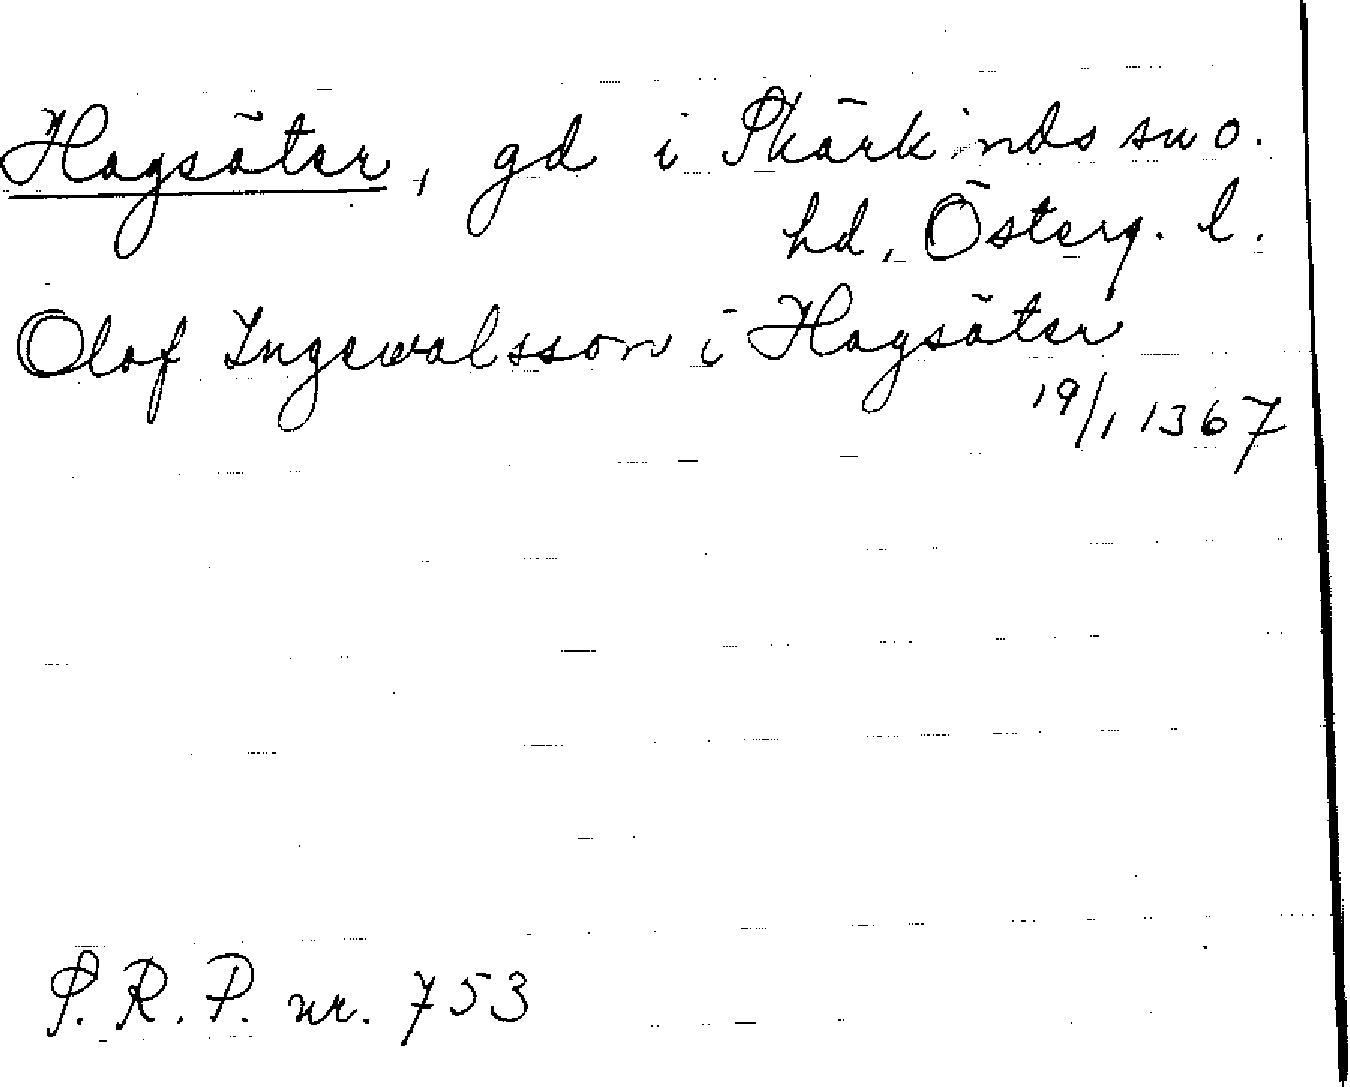 Hagsäter, gd i Skärkinds sn o.
hd, Österg. l.
Olaf Ingewalsson i Hagsäter
19/1 1367
S.R.P. nr. 753